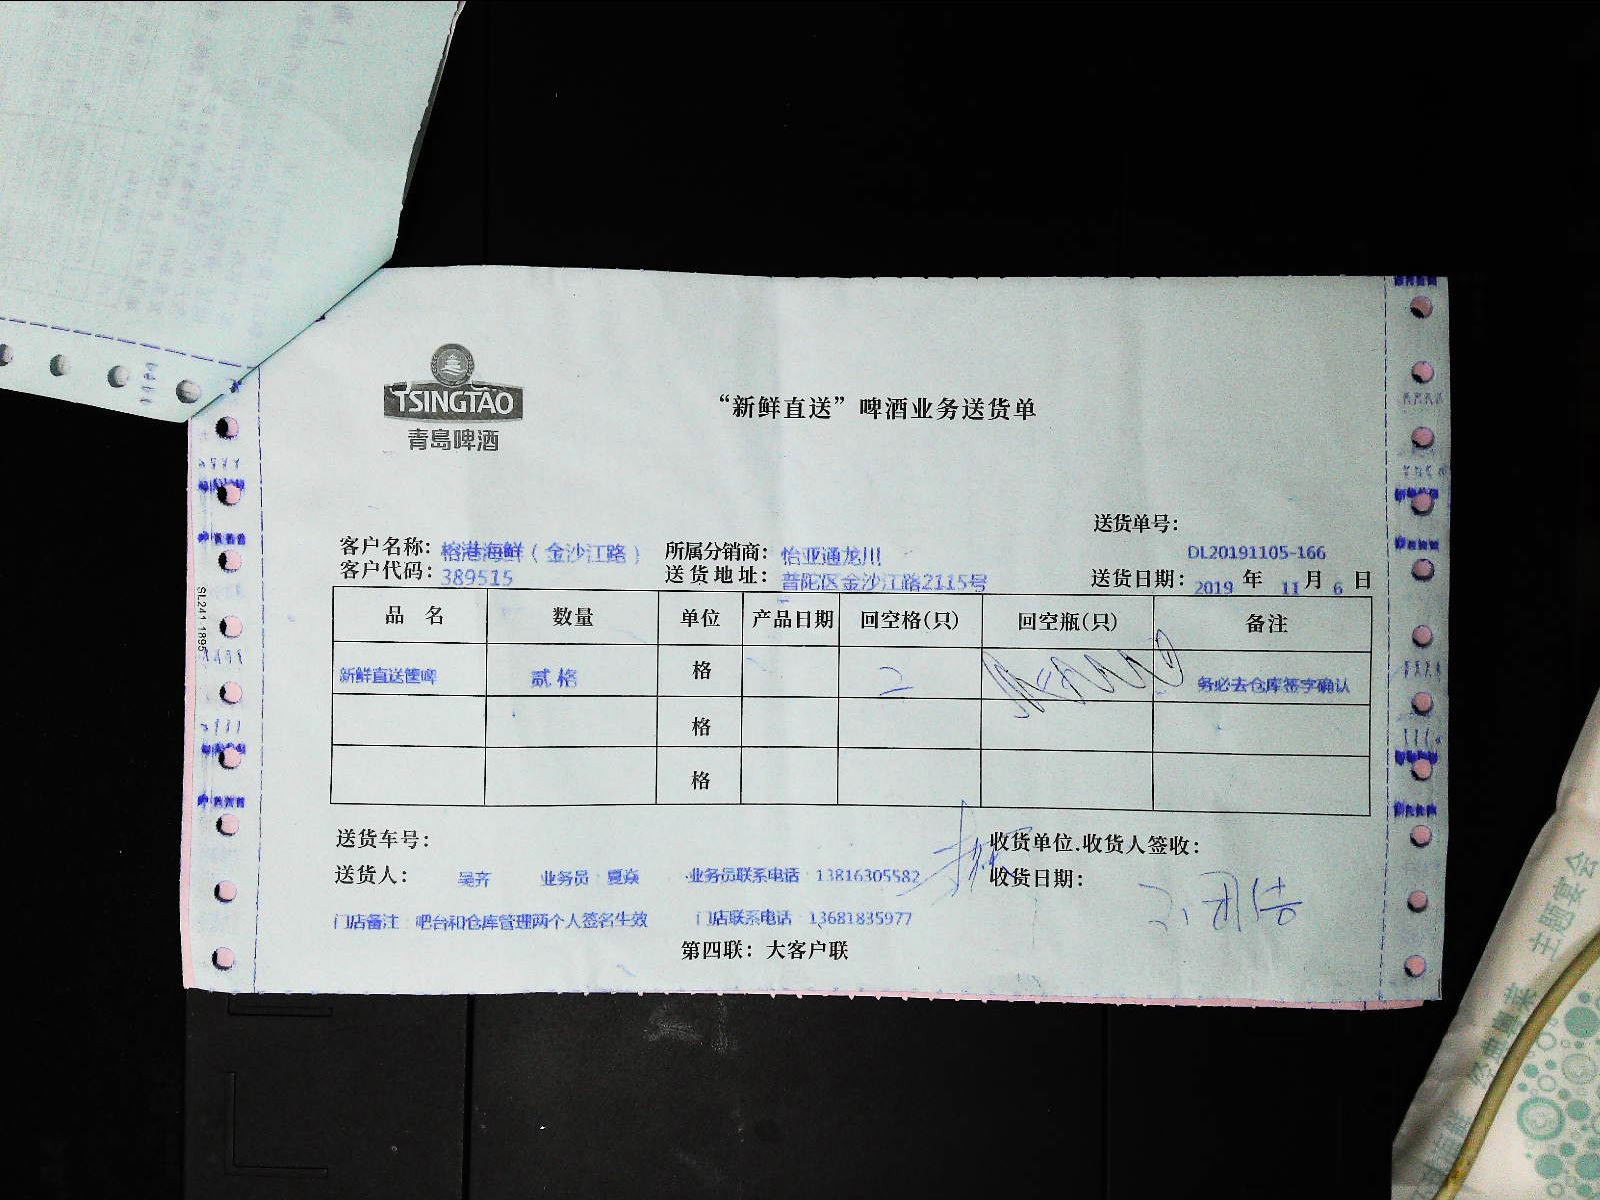 TSINGTAO
青岛啤酒
“新鲜直送”啤酒业务送货单
送货单号：
DL20191105-166
客户名称：榕港海鲜（金沙江路） 所属分销商：怡亚通龙川
客户代码：389515 送货地址：普陀区金沙江路2115号 送货日期：2019 年 11 月 6 日
品 名 数量 单位 产品日期 回空格(只) 回空瓶(只) 备注
新鲜直送筐啤 贰格 格 2 务必去仓库签字确认
格
格
送货车号： 收货单位.收货人签收：
送货人： 吴齐 业务员 夏焱 业务员联系电话 13816305582 收货日期：
门店备注 吧台和仓库管理两个人签名生效 门店联系电话 13681835977
第四联：大客户联
SL241 1895
主题宴会